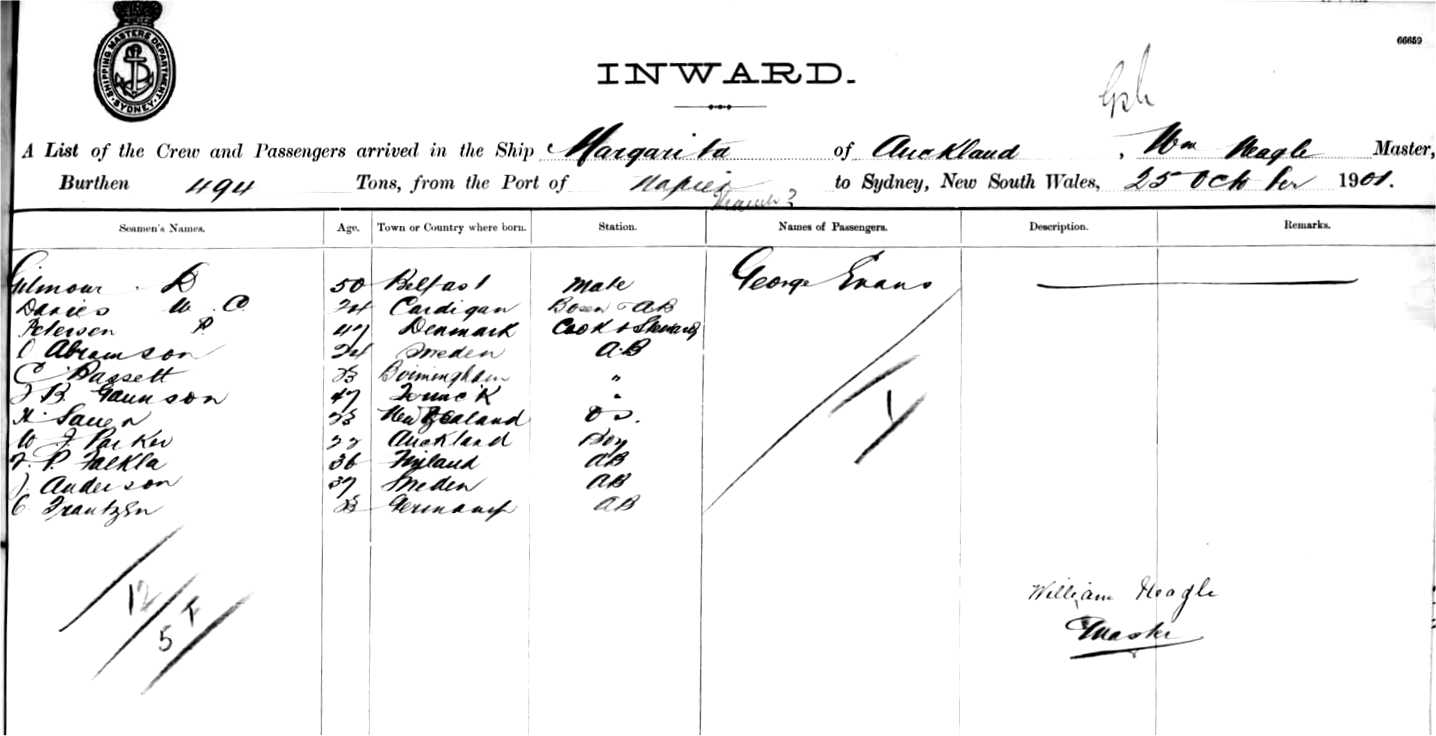 SHIPPING MASTERS DEPARTMENT SYDNEY
66659
INWARD.
A List of the Crew and Passengers arrived in the Ship Margarita of Auckland, Wm Neagle Master,
Burthen 494 Tons, from the Port of Napier to Sydney, New South Wales, 25 October 1901.
Seamen's Names. Age. Town or Country where born. Station. Names of Passengers. Description. Remarks.
Gilmour D 50 Belfast Mate George Evans
Davies W. C. 24 Cardigan Bosen & AB
Petersen P 47 Denmark Cook & Steward
Abramson 24 Sweden A.B
C Bassett 23 Birmingham "
J B Gaunson 47 "
H. Sauer 23 New Zealand O S.
W J Parker 22 Auckland Boy
F. P. Falkla 36 Finland AB
J Anderson 37 Sweden AB
C Frantzen 23 Germany AB
1
12
5 F
William Neagle
Master